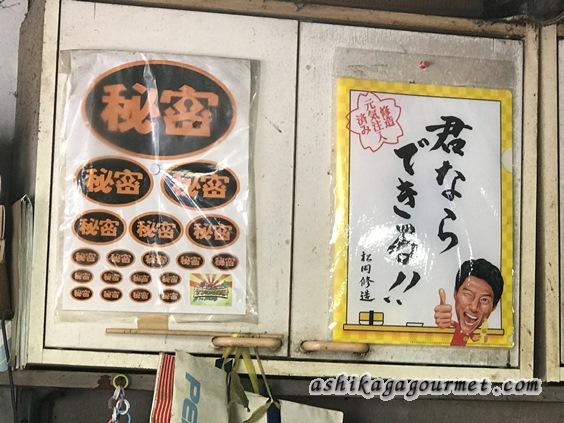 秘密
秘密 秘密
秘密 秘密 秘密
秘密 秘密 秘密 秘密 秘密
秘密 秘密 秘密 秘密 秘密
修造
元気注入
済み
君なら
できる!!
松岡修造
PE
ashikagagourmet.com